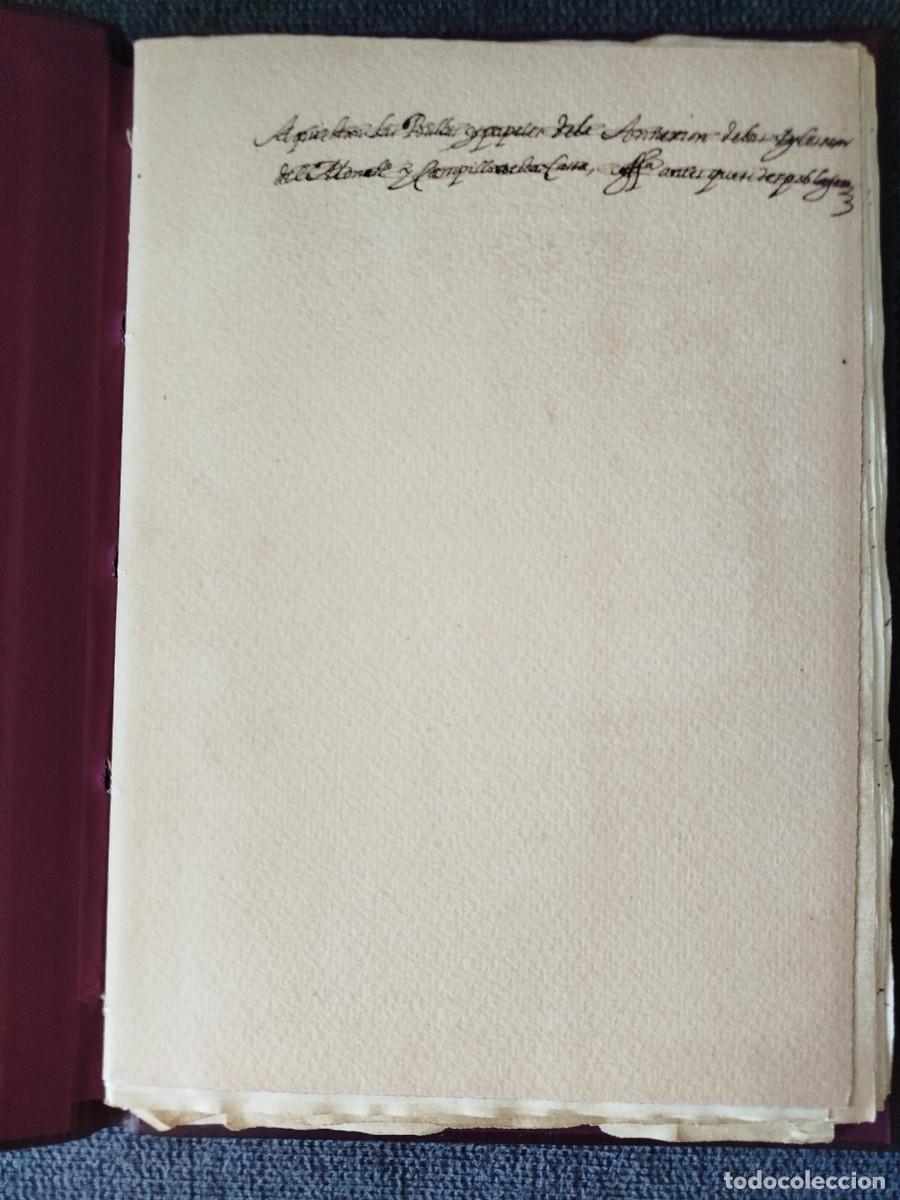 Aqui estan las Bullas y papeles dela Annexion delas Iglesias
del y Campillo dela antes que se despoblasen
todocoleccion